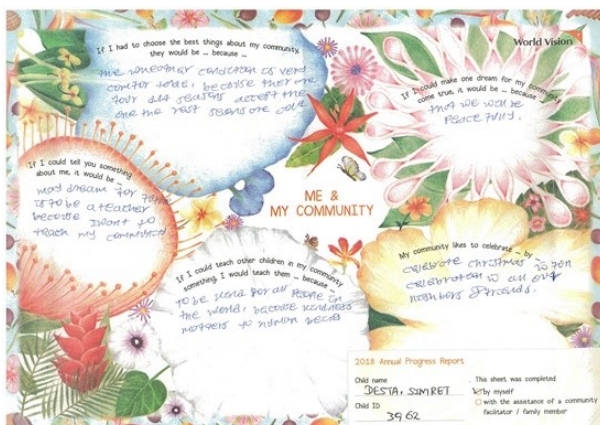 World Vision
If I had to choose the best things about my community,
they would be ... because ...
the wheather condition is very
comfortable, because there are
four seasons accept the
one the rest seasons are
If I could make one dream for my community
come true, it would be ... because ...
that we would
peace fully.
If I could tell you something
about me, it would be ...
may dream for
is to be a teacher
because I want to
teach my
ME &
MY COMMUNITY
If I could teach other children in my community
something, I would teach them ... because ...
To be kind for all people in
the world, because kindness
matters to human
My community likes to celebrate ... by ...
celebrate christmas is fun
celebration is all our
friends.
2018 Annual Progress Report
Child name
DESTA, SIMRET
Child ID
3962
This sheet was completed
by myself
with the assistance of a community
facilitator / family member